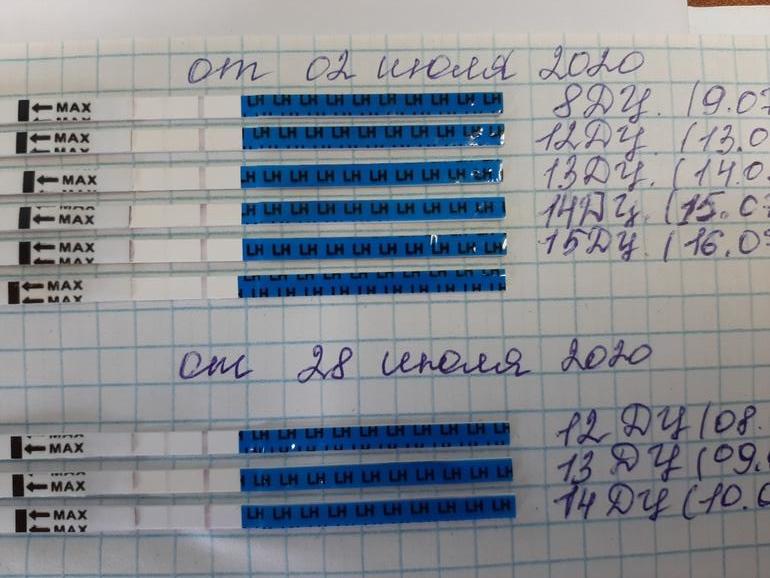 от 02 июля 2020
← MAX LH LH LH LH LH LH LH LH LH LH 8 ДЦ. (9.07
← MAX LH LH LH LH LH LH LH LH LH LH 12 ДЦ (13.0
← MAX LH LH LH LH LH LH LH LH LH LH 13 ДЦ. (14.0
← MAX LH LH LH LH LH LH LH LH LH LH 14 ДЦ. (15.07
← MAX LH LH LH LH LH LH LH LH LH LH 15 ДЦ. (16.0
← MAX LH LH LH LH LH LH LH LH LH LH
от 28 июля 2020
← MAX LH LH LH LH LH LH LH LH LH LH 12 ДЦ (08.
← MAX LH LH LH LH LH LH LH LH LH LH 13 ДЦ (09.
← MAX LH LH LH LH LH LH LH LH LH LH 14 ДЦ (10.0